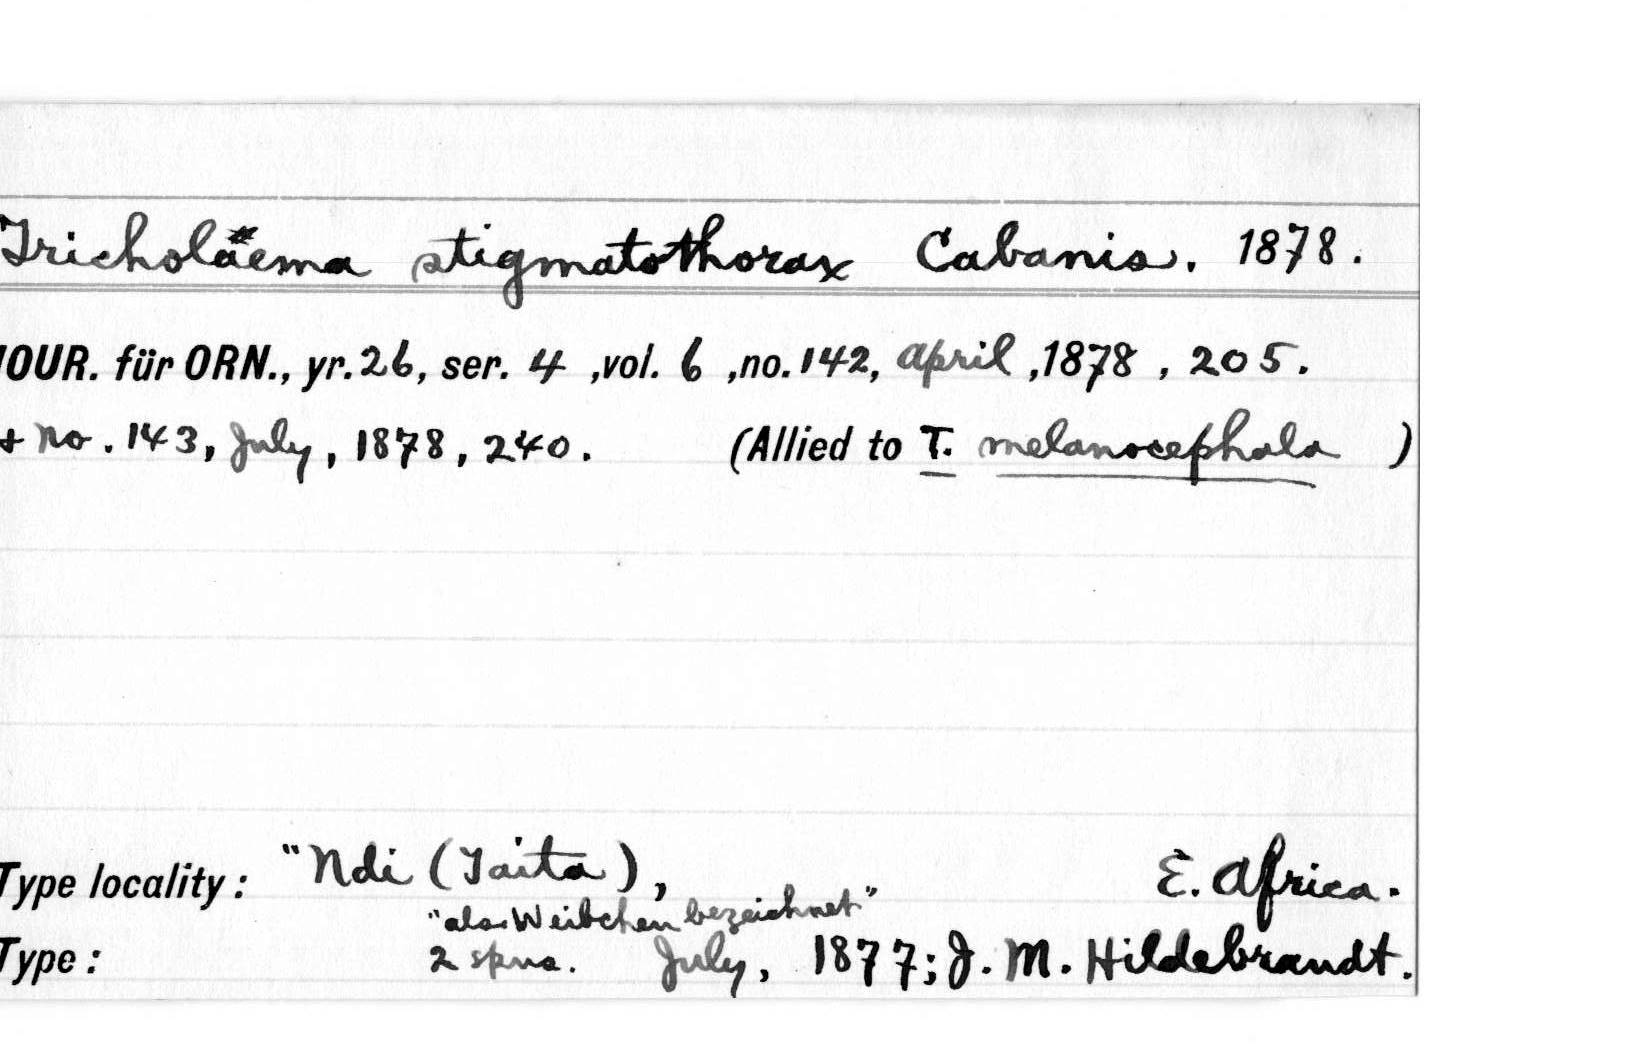 Tricholaema stigmatothorax Cabanis. 1878.
JOUR. für ORN., yr. 26, ser. 4 ,vol. 6 ,no. 142, April ,1878 , 205.
+ No. 143, July, 1878, 240. (Allied to T. melanocephala )
Type locality: "Ndi (Taita), E. Africa.
"als Weibchen bezeichnet"
Type: 2 spns. July, 1877; J. M. Hildebrandt.